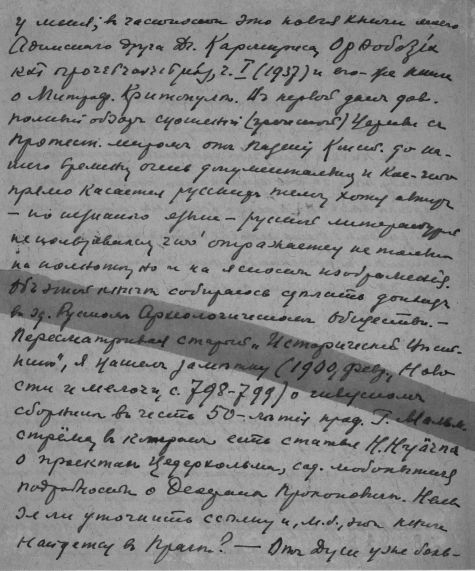 у меня; в частности это новыя книги моего
Афинского друга Dr. Кармириса Ὀρθοδοξία
καὶ προτεσταντισμός, т. I (1937) и его-же книга
о Митроф. Критопуле. Из первой дает дов.
полный обзор сношений (греческой) Церкви с
протест. миром от паденія Конст. до на-
шего времени, очень документально и кое-что
прямо касается русских тем, хотя автор
— по незнанію языка — русской литературой
не пользовался, что отражается не только
на полноте, но и на ясности изображенія.
Об этой книге собираюсь сделать доклад
в зд. Русском Археологическом Обществе. —
Пересматривая старый „Исторический Вест-
ник", я нашел заметку (1900, февр., Ново-
сти и мелочи, с. 798-799) о шведском
сборнике в честь 50-летия проф. Г. Мальм-
стрёма, в котором есть статья
о проектах Цедергольма, сод. любопытныя
подробности о Феофане Прокоповиче. Нель-
зя ли уточнить ссылку и, м.б., эта книга
найдется в Праге? — От Дуси уже боль-